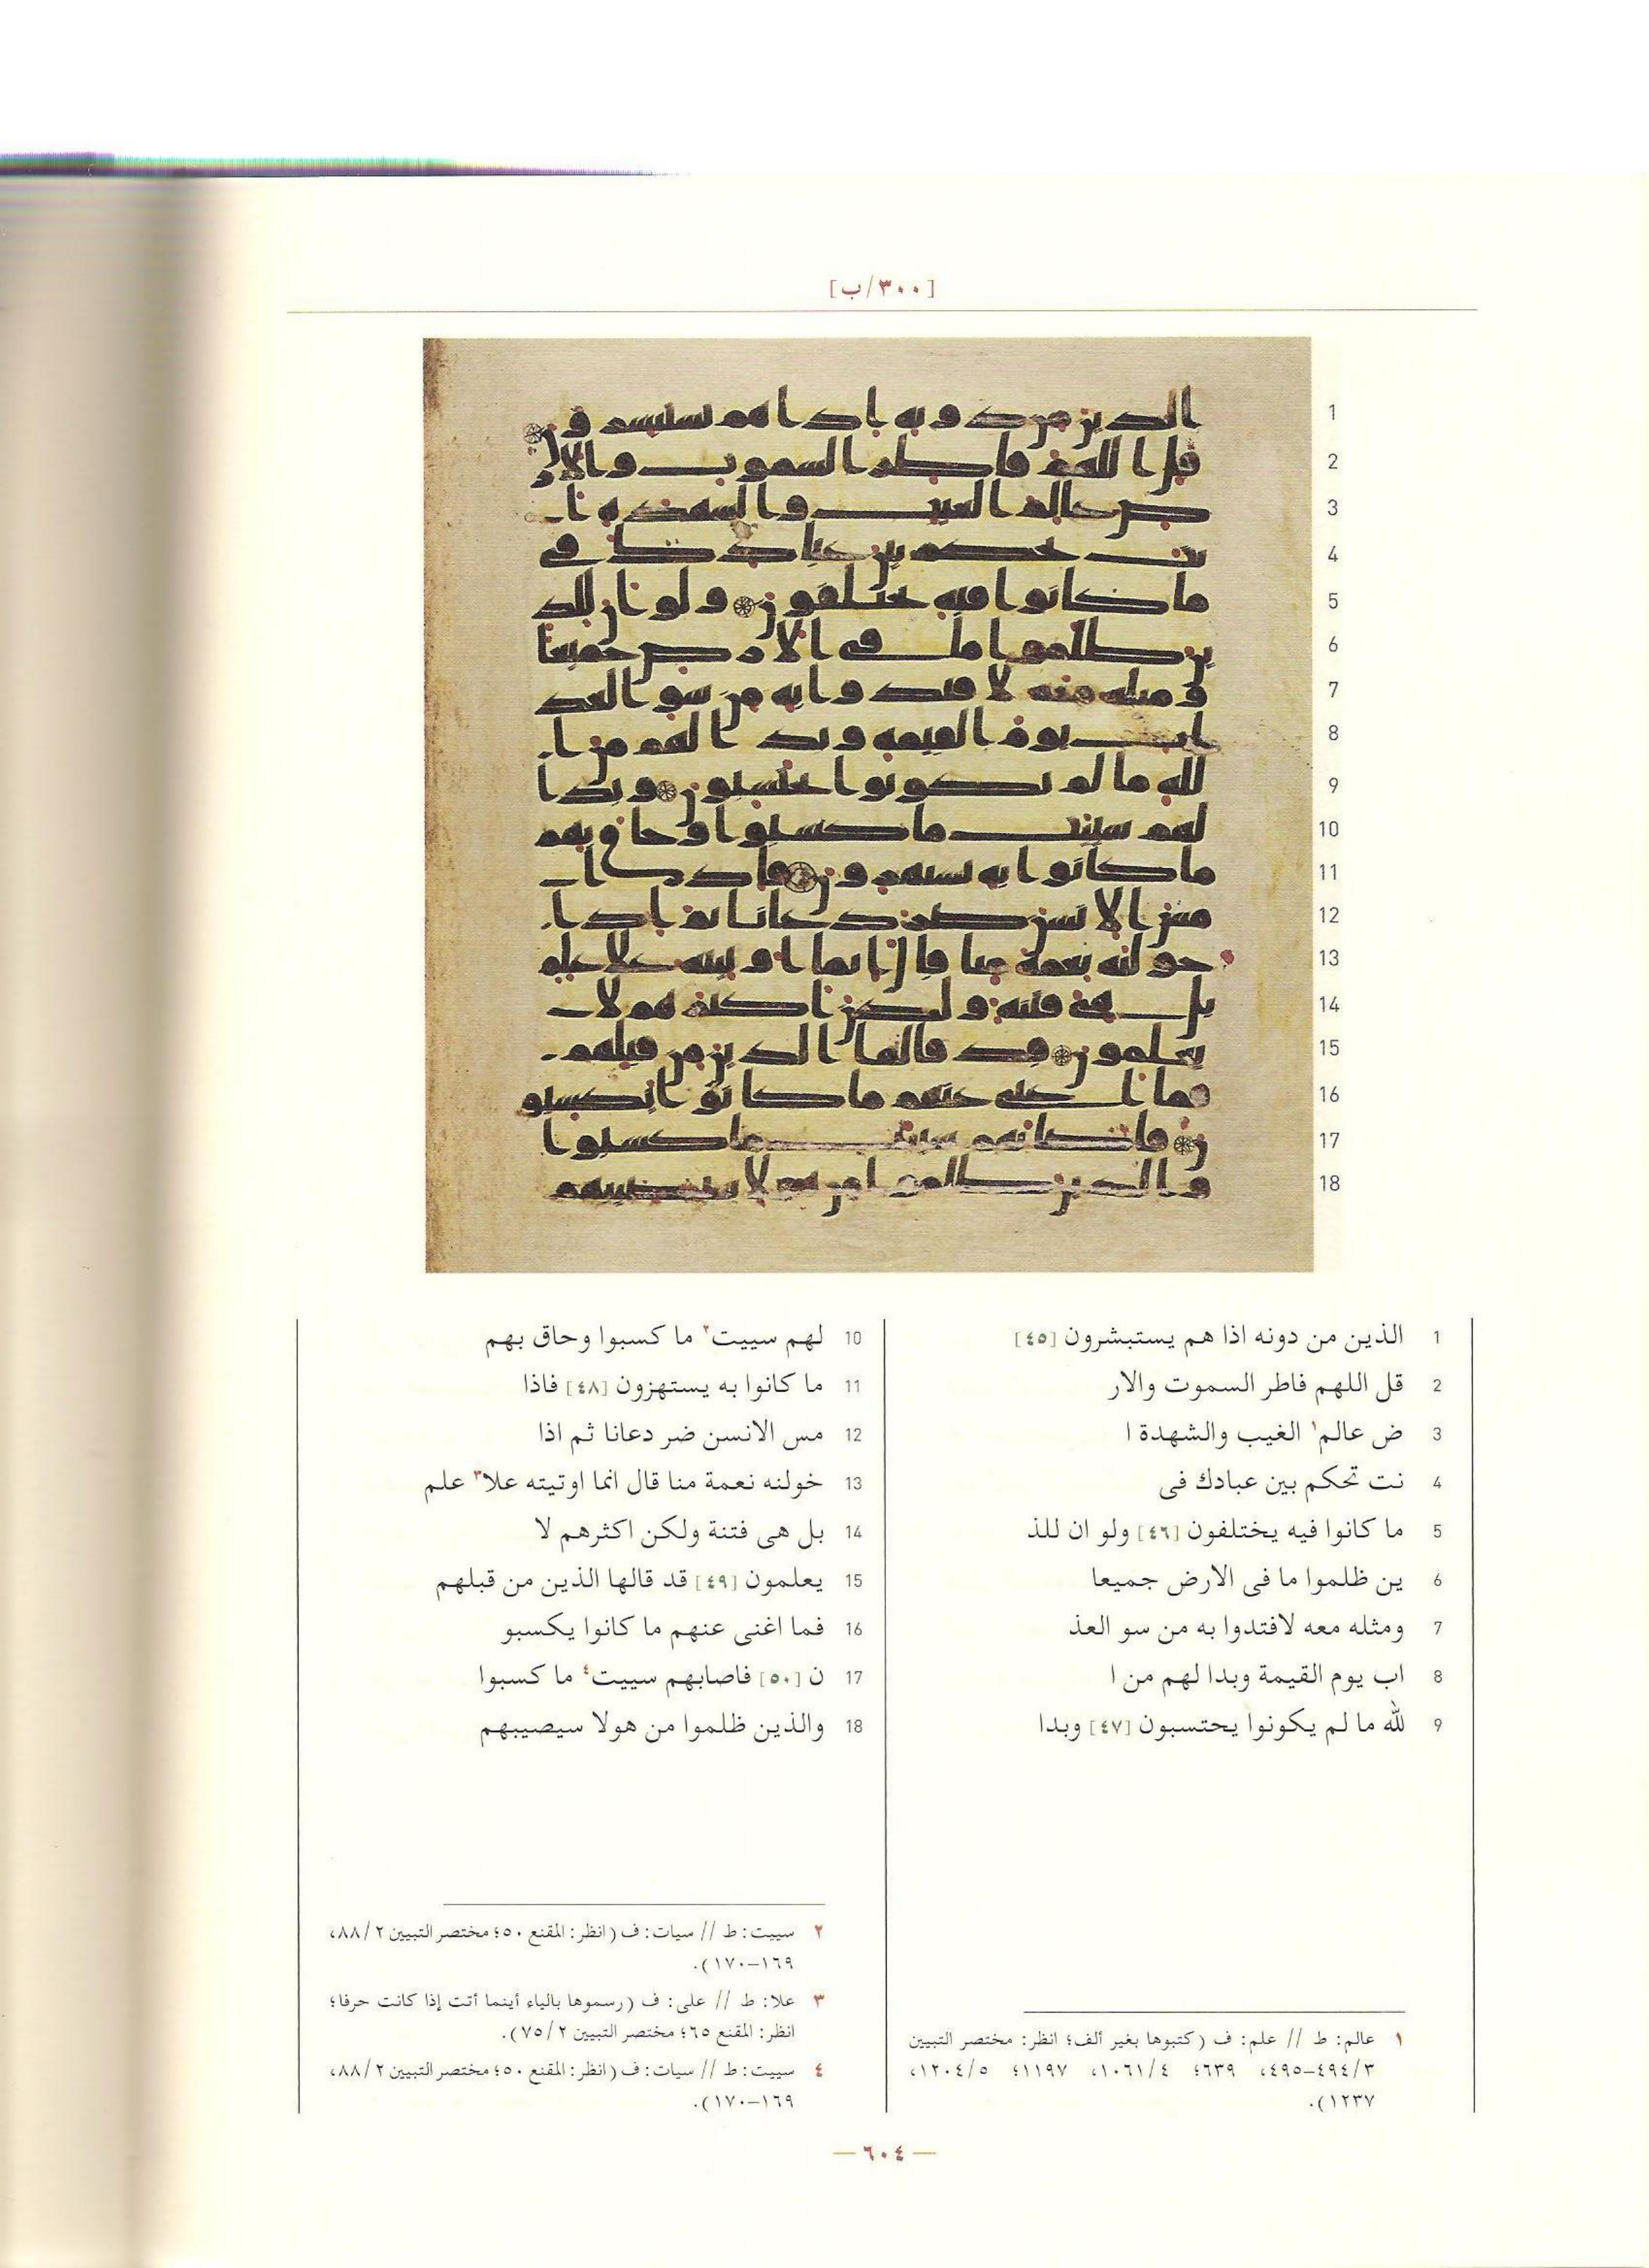 [٣٠٠/ب]
1 الذين من دونه اذا هم يستبشرون [٤٥]
2 قل اللهم فاطر السموت والار
3 ض عالم١ الغيب والشهدة ا
4 نت تحكم بين عبادك فى
5 ما كانوا فيه يختلفون [٤٦] ولو ان للذ
6 ين ظلموا ما فى الارض جميعا
7 ومثله معه لافتدوا به من سو العذ
8 اب يوم القيمة وبدا لهم من ا
9 لله ما لم يكونوا يحتسبون [٤٧] وبدا
10 لهم سييت٢ ما كسبوا وحاق بهم
11 ما كانوا به يستهزون [٤٨] فاذا
12 مس الانسن ضر دعانا ثم اذا
13 خولنه نعمة منا قال انما اوتيته علا٣ علم
14 بل هى فتنة ولكن اكثرهم لا
15 يعلمون [٤٩] قد قالها الذين من قبلهم
16 فما اغنى عنهم ما كانوا يكسبو
17 ن [٥٠] فاصابهم سييت٤ ما كسبوا
18 والذين ظلموا من هولا سيصيبهم
١ عالم: ط // علم: ف (كتبوها بغير ألف؛ انظر: مختصر التبيين
٣/٤٩٤–٤٩٥، ٦٣٩؛ ٤/١٠٦١، ١١٩٧؛ ٥/١٢٠٤،
١٢٣٧).
٢ سييت: ط // سيات: ف (انظر: المقنع ٥٠؛ مختصر التبيين ٢/٨٨،
١٦٩–١٧٠).
٣ علا: ط // على: ف (رسموها بالياء أينما أتت إذا كانت حرفا؛
انظر: المقنع ٦٥؛ مختصر التبيين ٢/٧٥).
٤ سييت: ط // سيات: ف (انظر: المقنع ٥٠؛ مختصر التبيين ٢/٨٨،
١٦٩–١٧٠).
— ٦٠٤ —